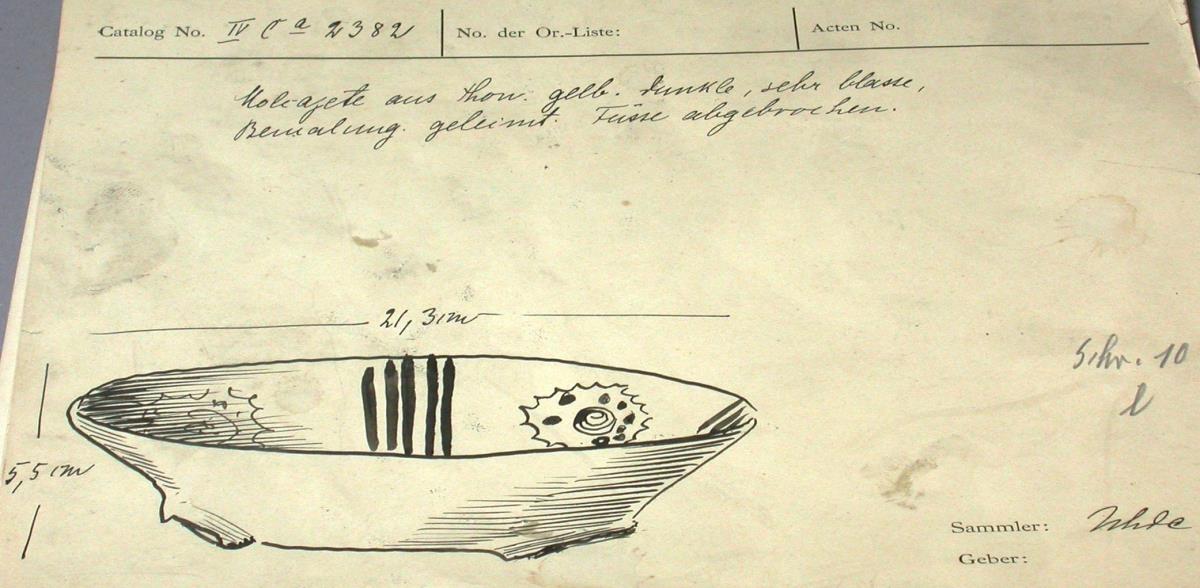 Catalog No. IV Ca 2382 No. der Or.-Liste: Acten No.
Molcajete aus Thon. gelb. dunkle, sehr blasse,
Bemalung. geleimt. Füsse abgebrochen.
21,3 cm
Schr. 10
l
5,5 cm
Sammler: Uhde
Geber: